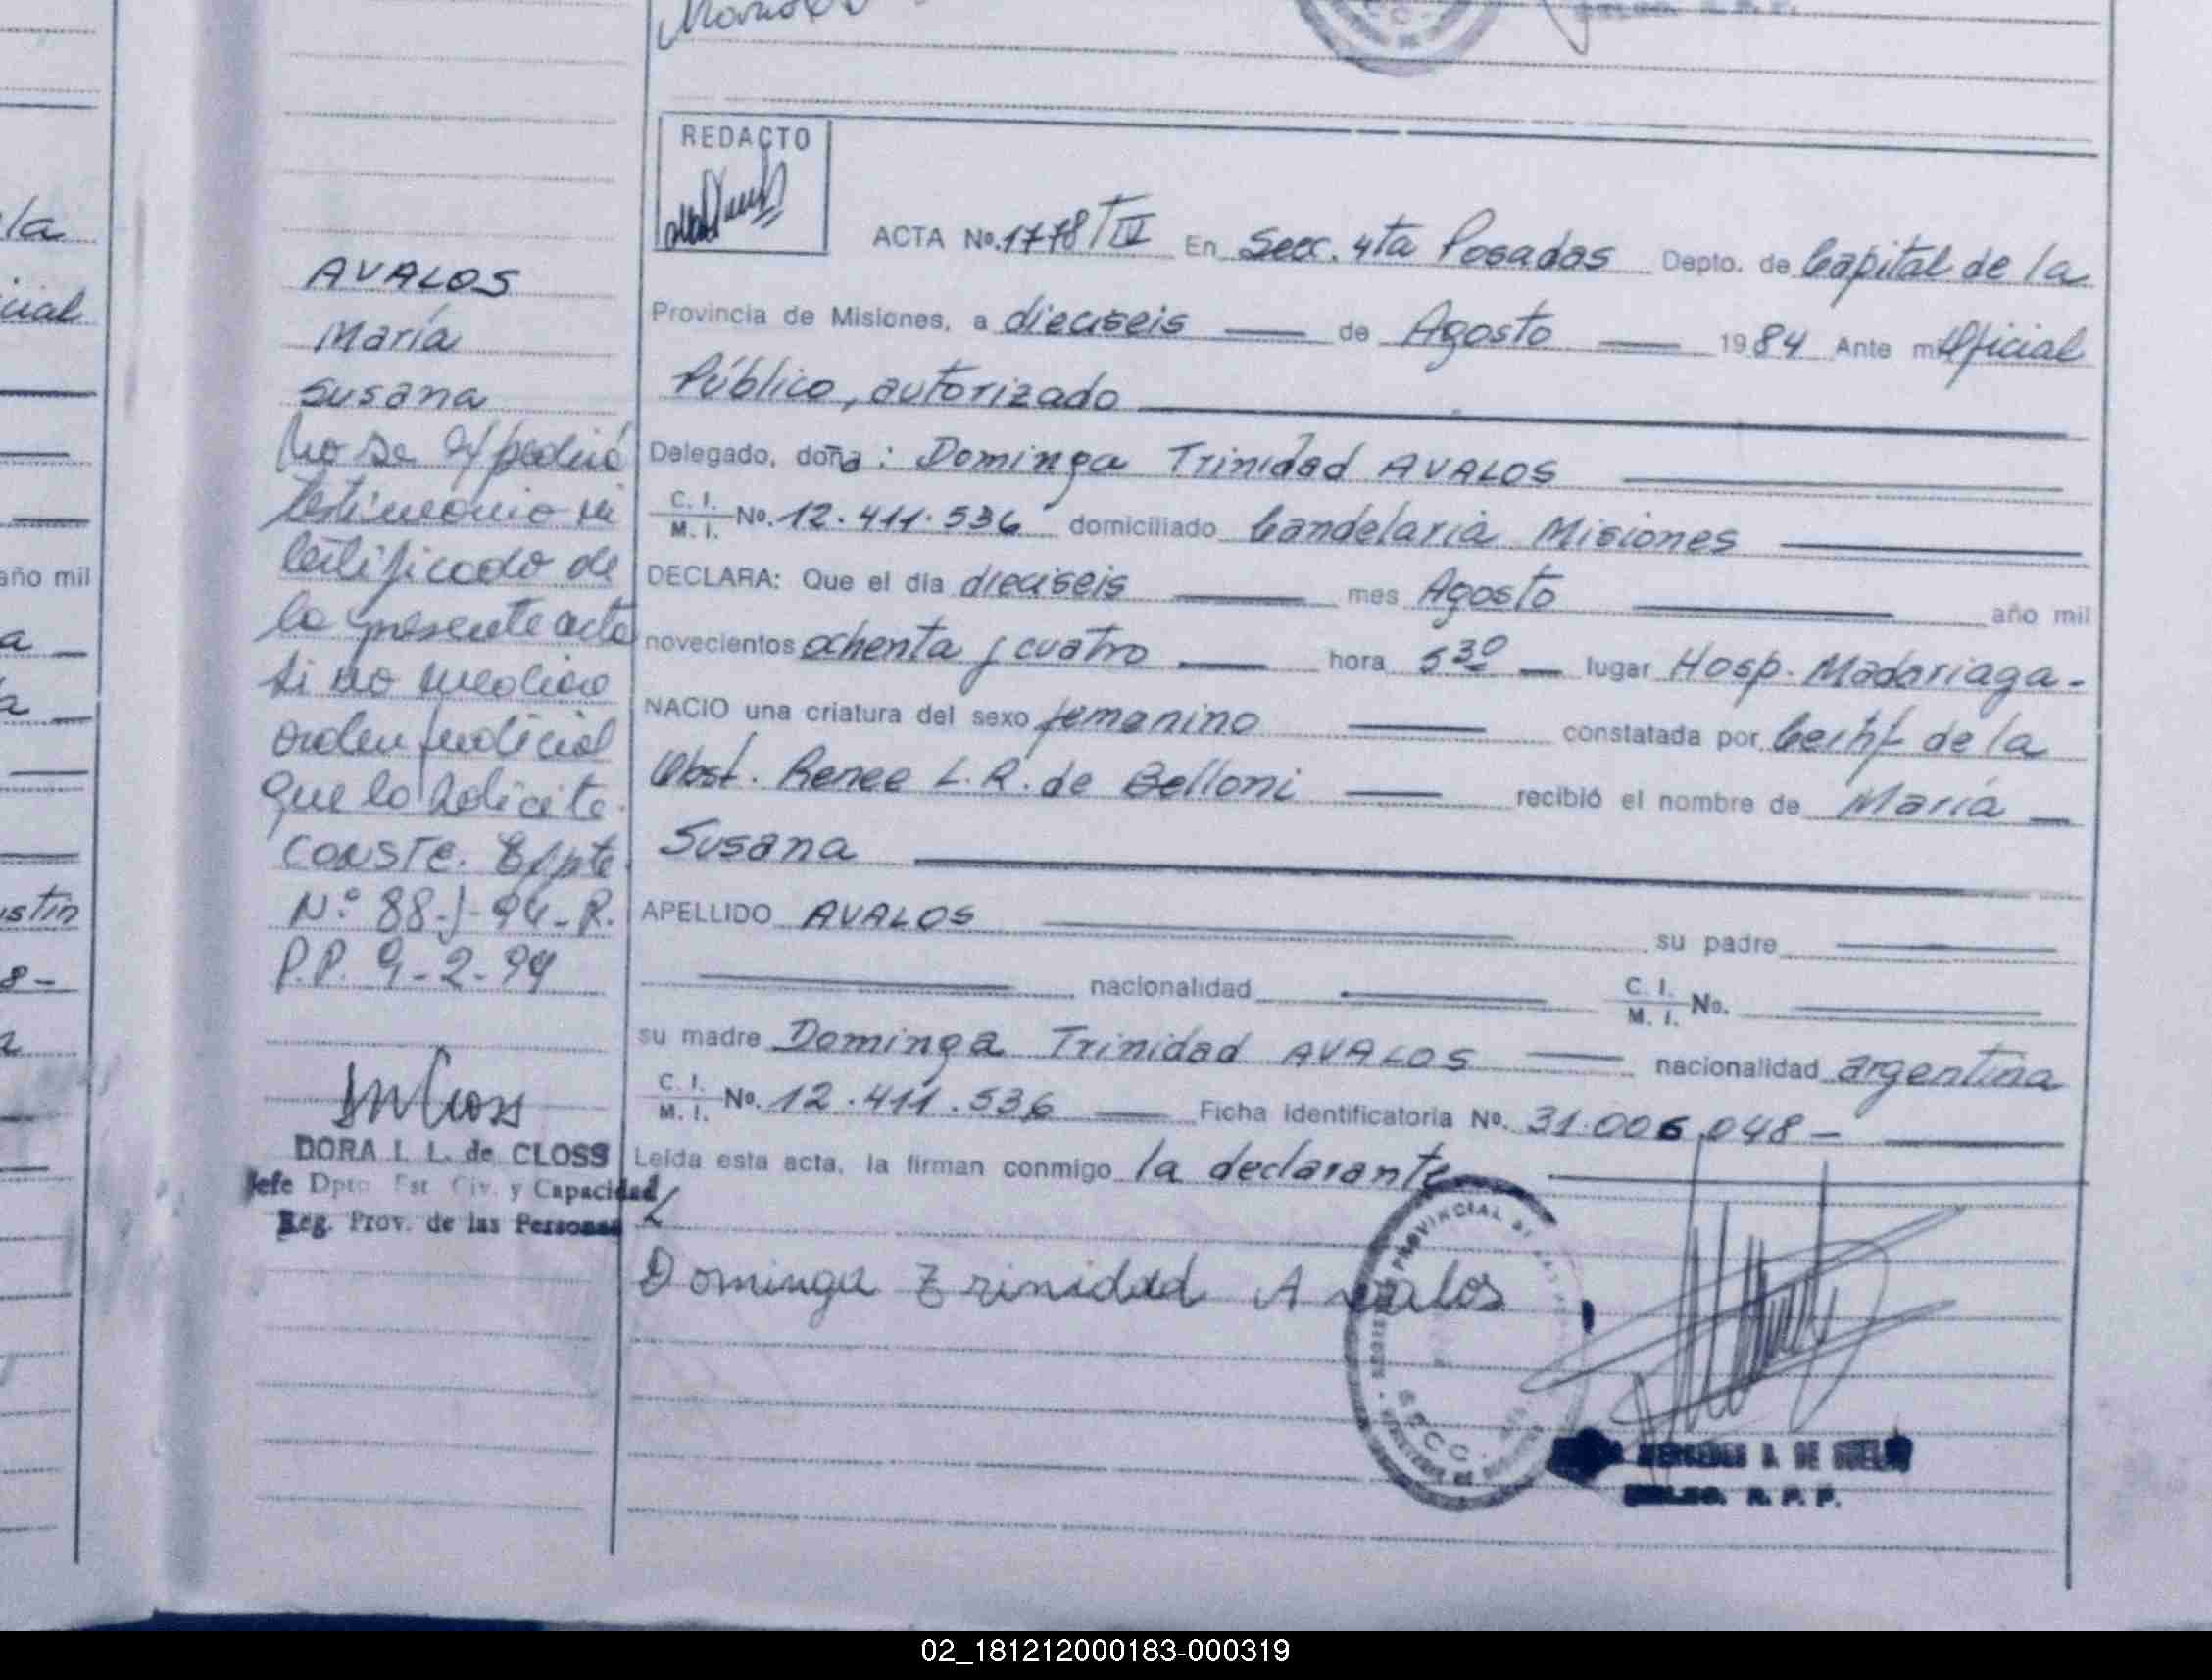 la
cial
año mil
a
a
stin
8-
a
AVALOS
María
Susana
No se expedirá
testimonio ni
certificado de
la presente acta
si no mediare
orden judicial
que lo solicite.
CONSTE. Expte
N.º 88-J-94-R.
P.P. 9-2-94
DORA I. L. de CLOSS
Jefe Dpto Est Civ. y Capacidad
Reg. Prov. de las Personas
REDACTO
ACTA No. 1778/TIV En Secc. 4ta Posadas Depto. de Capital de la
Provincia de Misiones, a dieciseis de Agosto 1984 Ante mi Oficial
Público, autorizado
Delegado, doña: Dominga Trinidad AVALOS
C. I. / M. I. No. 12.411.536 domiciliado Candelaria Misiones
DECLARA: Que el día dieciseis mes Agosto año mil
novecientos ochenta y cuatro hora 5 30 lugar Hosp. Madariaga-
NACIO una criatura del sexo femenino constatada por Certif de la
Obst. Renee L. R. de Belloni recibió el nombre de María
Susana
APELLIDO AVALOS su padre
nacionalidad C. I. / M. I. No.
su madre Dominga Trinidad AVALOS nacionalidad argentina
C. I. / M. I. No. 12.411.536 Ficha Identificatoria No. 31.006.048-
Leída esta acta, la firman conmigo la declarante
Dominga Trinidad Avalos
PROVINCIAL
SECC.
MERCEDES A. DE
R. P. P.
02_181212000183-000319